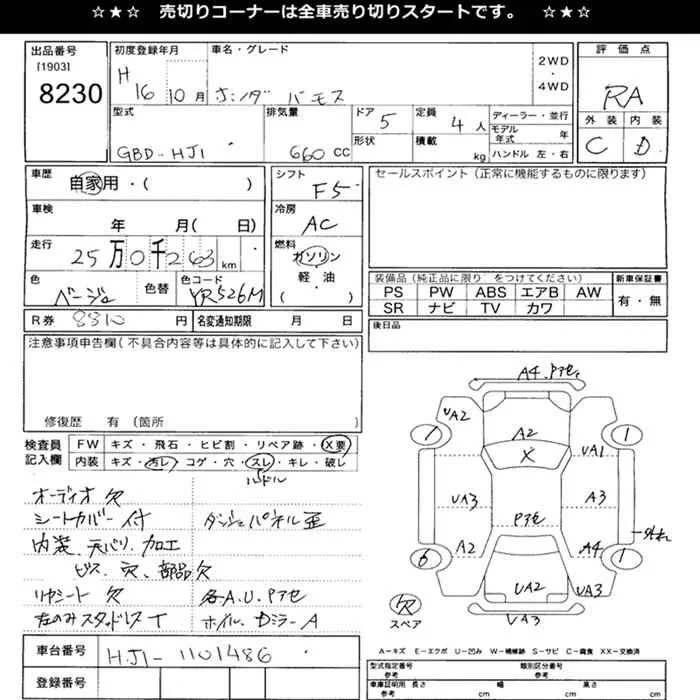 ☆★☆ 売切りコーナーは全車売り切りスタートです。 ☆★☆
出品番号 初度登録年月 車名・グレード 2WD・4WD 評価点
[1903]
8230 H16 10月 ホンダ バモス RA
型式 排気量 ドア 定員 ディーラー・並行 外装 内装
GBD-HJ1 660cc 5 4人 モデル年式 年 C D
形状 積載 kg ハンドル 左・右
車歴 自家用・( ) シフト F5 セールスポイント(正常に機能するものに限ります)
車検 年 月( 日) 冷房 AC
走行 25万0千263km 燃料 ガソリン
軽・油
( )
色 ベージュ 色替 色コード YR526M
装備品(純正品に限り をつけてください) 新車保証書
PS PW ABS エアB AW 有・無
SR ナビ TV カワ
R券 8810円 名変通知期限 月 日 後日品
注意事項申告欄(不具合内容等は具体的に記入して下さい)
修復歴 有(箇所 )
検査員記入欄 FW キズ・飛石・ヒビ割・リペア跡・X要
内装 キズ・汚レ・コゲ・穴・スレ・キレ・破レ
ハンドル
オーディオ欠
シートカバー付 ダッシュパネル歪
内装、天バリ、加工
ビス、穴、部品欠
リヤシート欠 各A.U.Pアセ
左のみスタッドレスT ホイル、DミラーA
A4.Pアセ
UA2
7 A2 1
X UA1
UA3 A3
Pアセ 外れ
6 A2 A4 1
UA2 UA3
欠 UA3
スペア
A-キズ E-エクボ U-凹み W-補修跡 S-サビ C-腐食 XX-交換済
車台番号 HJ1-1101486
登録番号
型式指定番号 類別区分番号
参考 参考
車庫証明用 長さ 幅 高さ
参考 cm cm cm